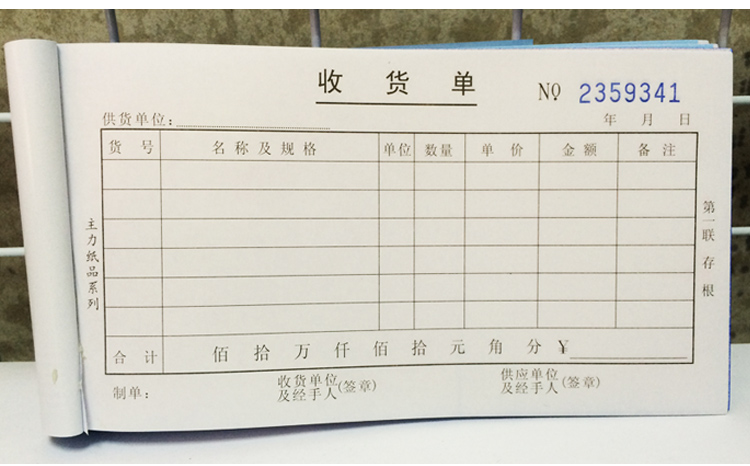 收 货 单
№ 2359341
供货单位:
年 月 日
货 号 名称及规格 单位 数量 单 价 金额 备 注
主力纸品系列
第一联存根
合 计 佰 拾 万 仟 佰 拾 元 角 分 ¥
制单:
收货单位
及经手人(签章)
供应单位
及经手人(签章)